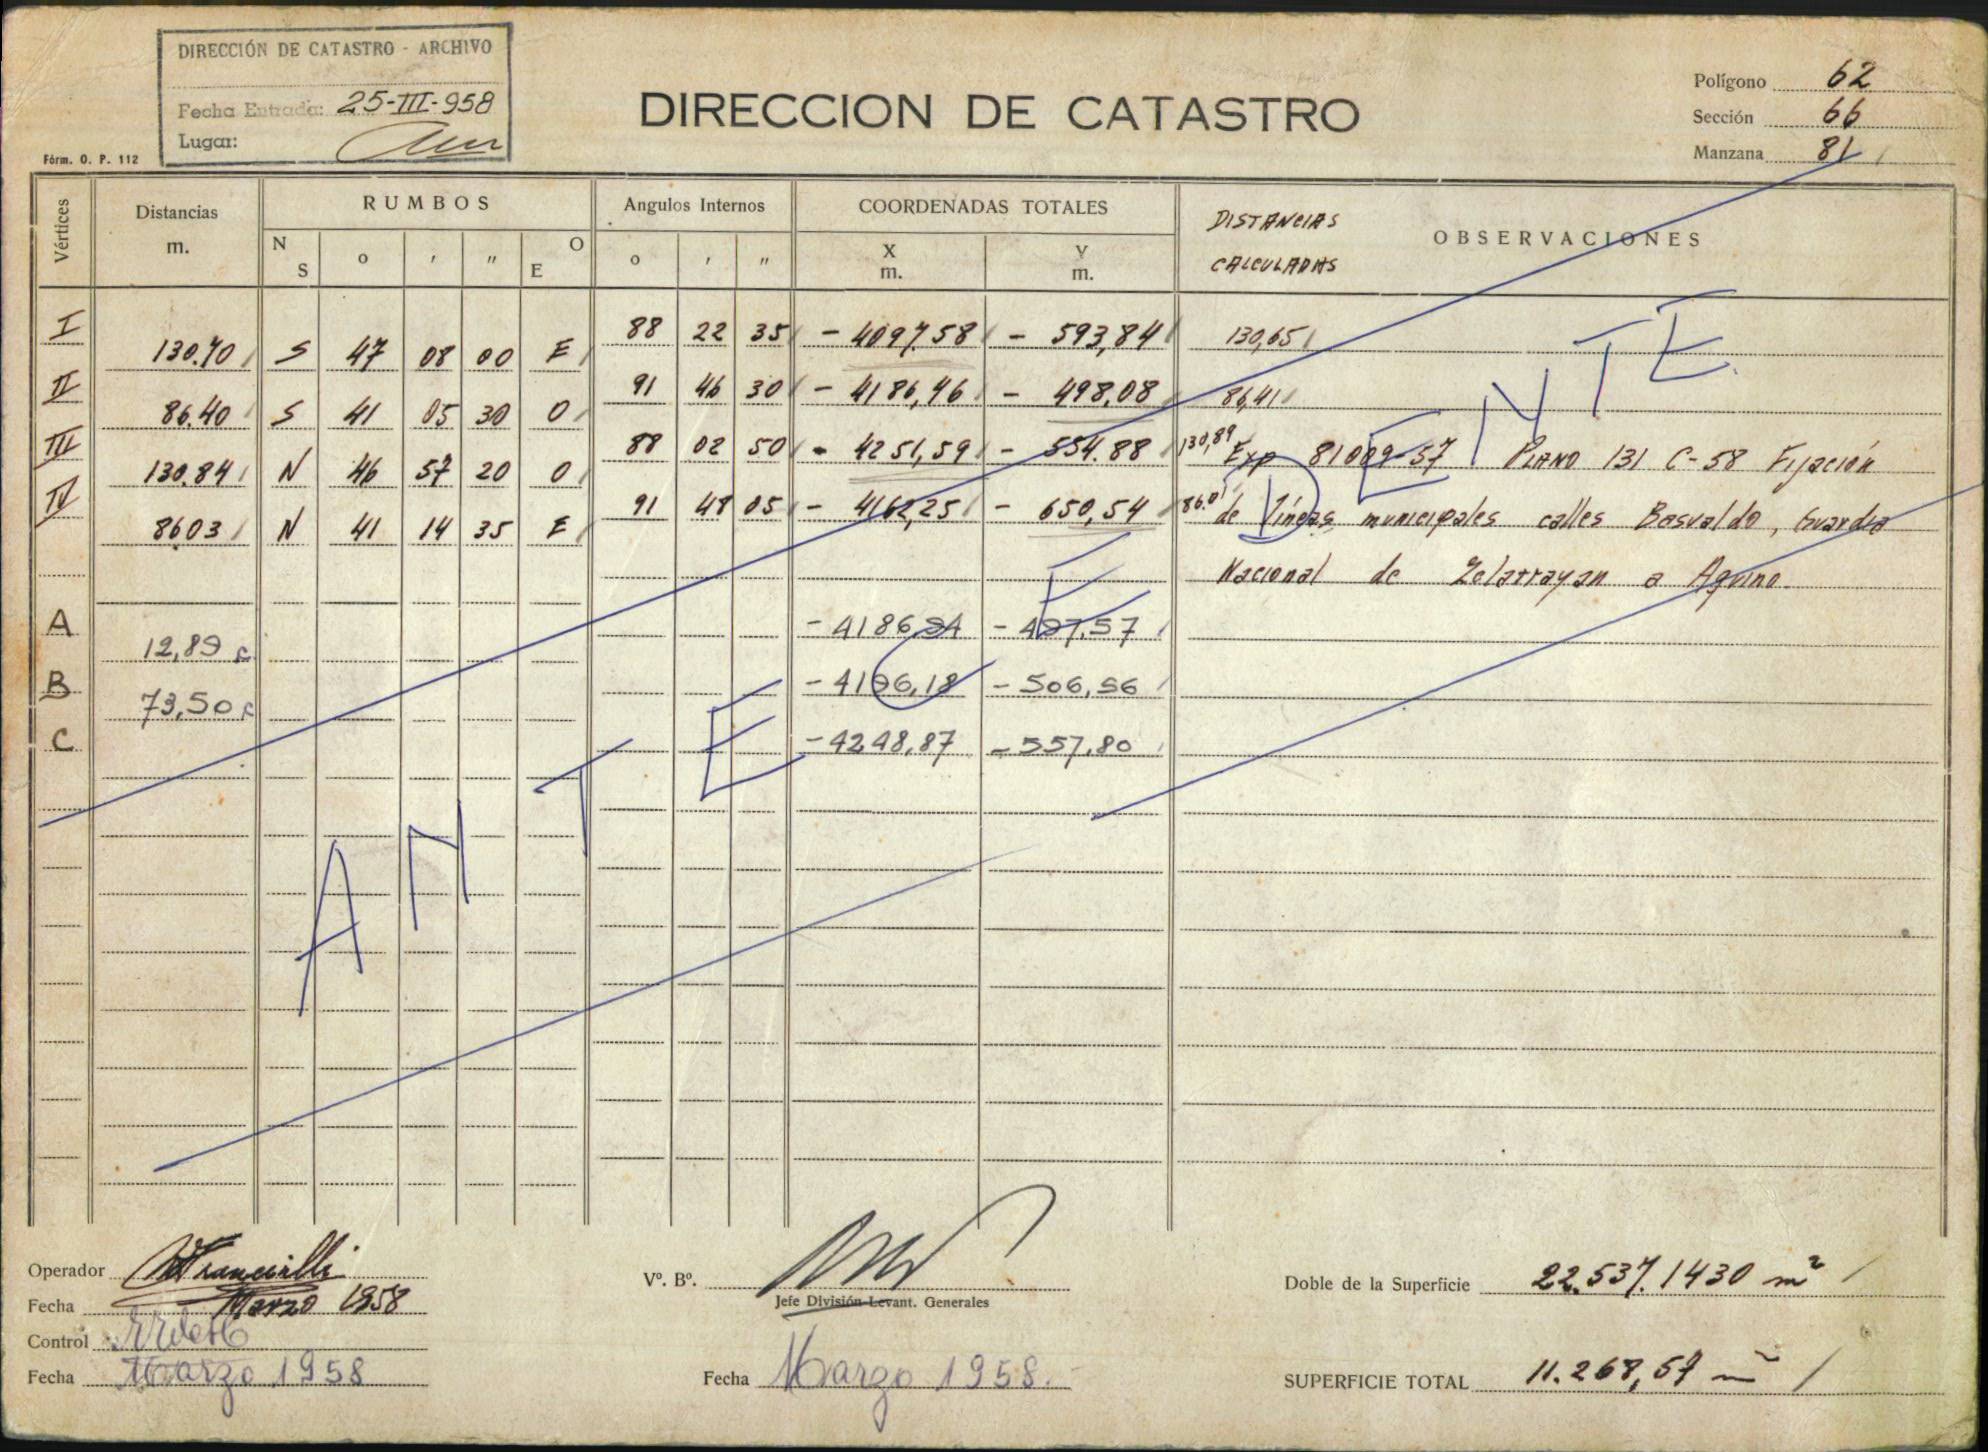 DIRECCIÓN DE CATASTRO - ARCHIVO
Fecha Entrada: 25-III-958
Lugar:
Fórm. O. P. 112
DIRECCION DE CATASTRO
Polígono 62
Sección 66
Manzana 81
Vértices Distancias m. RUMBOS Angulos Internos COORDENADAS TOTALES DISTANCIAS CALCULADAS OBSERVACIONES
N S o ' " O E o ' " X m. Y m.
I 88 22 35 - 4097.58 - 593,84 130,65
130.70 S 47 08 00 E
II 91 46 30 - 4186,46 - 498,08 86,41
86.40 S 41 05 30 O
III 88 02 50 - 4251,59 - 554.88 130,89 Exp 81009-57 PLANO 131 C-58 Fijación
130.84 N 46 57 20 O
IV 91 48 05 - 4162,25 - 650,54 86.01 de líneas municipales calles Basualdo, Guardia
8603 N 41 14 35 E
Nacional de Zelarrayan a Aquino.
A -4186,94 -497,57
12,89
B -4196,18 -506,56
73,50
C -4248,87 -557,80
ANTECEDENTE
Operador
Fecha Marzo 1958
Control
Fecha Marzo 1958
Vº. Bº.
Jefe División Levant. Generales
Fecha Marzo 1958.
Doble de la Superficie 22.537.1430 m²
SUPERFICIE TOTAL 11.268,57 m²